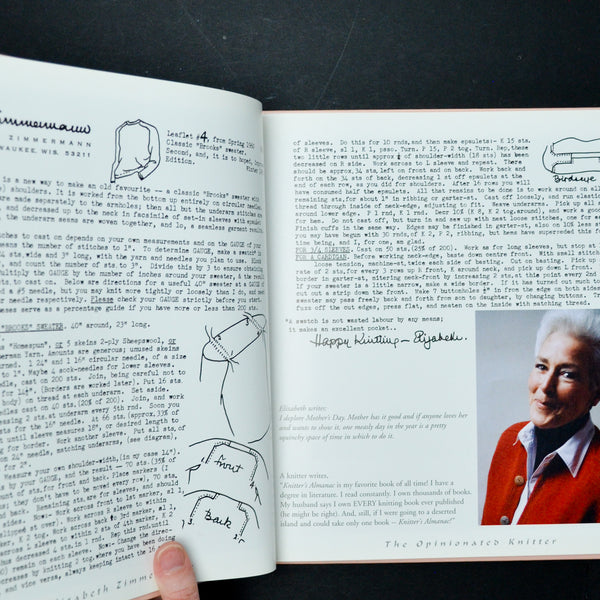 Zimmermann
ZIMMERMANN
WAUKEE, WIS. 53211
Leaflet #4, from Spring 1960
Classic "Brooks" sweater.
Second, and, it is to hoped,
Edition.
is a new way to make an old favourite — a classic "Brooks" sweater with
shoulders. It is worked from the bottom up entirely on circular needles
are made separately to the armholes; then all but the underarm stitches are
, and decreased up to the neck in facsimile of set-in sleeves with
the underarm seams are woven together, and lo, a seamless garment results
tches to cast on depends on your own measurements and on the GAUGE of your
eans the number of stitches to 1". To determine GAUGE, make a swatch* in
sts. wide and 3" long, with the yarn and needles you plan to use.
, and count the number of sts. to 3". Divide this by 3 to ensure obtaining
ultiply the GAUGE by the number of inches around your sweater, and
ts. to cast on. Below are directions for a useful 40" sweater at a GAUGE of
d a #5 needle, but you may knit more tightly or loosely than I do, and need
r needle respectively. Please check your GAUGE strictly before you start.
eness serve as a percentage guide if you have more or less than 200 sts.
"BROOKS" SWEATER. 40" around, 23" long.
"Homespun", or 5 skeins 2-ply Sheepswool, or
erman Yarn. Amounts are generous; unused skeins
rned. 1 24" and 1 16" circular needle, of a size
to 1". Maybe 4 sock-needles for lower sleeves.
needle, cast on 200 sts. Join, being careful not to
for 14". (Borders are worked later). Put 16 sts.
body) on thread at each underarm. Set aside.
needles cast on 40 sts.(20% of 200). Join, and work
creasing 2 sts.at underarm every 5th rnd. Soon you
the 16" needle. At 66 sts. (approx.33% of
until sleeve measures 18", or desired length
g for border). Work another sleeve. Put all sts. of
24" needle, matching underarms, (see diagram),
for 2".
Measure your own shoulder-width, (in my case 14").
of your GAUGE, and the result — 70 sts. (35% of
ount of sts. for front and back. Place markers (I
us; they don't have to be moved every row), 70 sts.
nd back. Remaining sts. are for sleeves, and should
Front
Back
of sleeves. Do this for 10 rnds, and then make epaulets:- K 15 sts.
of R sleeve, sl 1, K 1, psso. Turn. P 15, P 2 tog. Turn. Rep. these
two little rows until approx ½ of shoulder-width (18 sts) has been
decreased on R side. Work across to L sleeve and repeat. There
should be approx. 34 sts. left on front and on back. Work back and
forth on the 34 sts of back, decreasing 1 st of epaulets at the
end of each row, as you did for shoulders. After 16 rows you will
have consumed half the epaulets. All that remains to be done is to work around on all
remaining sts. for about 1" in ribbing or garter-st. Cast off loosely, and run elastic
thread through inside of neck-edge, adjusting to fit. Weave underarms. Pick up all
around lower edge. P 1 rnd, K 1 rnd. Decr 10% (K 8, K 2 tog. around), and work a good
for hem. Do not cast off, but turn in and sew up with neat loose stitches, one for each
Finish cuffs in the same way. Edges may be finished in garter-st, also on 10% less
you may have begun with 30 rnds. of K 2, P 2, ribbing, but hems have superceded this for
time being, and I, for one, am glad.
FOR 3/4 SLEEVES Cast on 50 sts.(25% of 200). Work as for long sleeves, but stop at
FOR A CARDIGAN. Before working neck-edge, baste down centre front. With small stitch
loose tension, machine-st. twice each side of basting. Cut on basting. Pick up
rate of 2 sts. for every 3 rows up R front, K around neck, and pick up down L front.
border in garter-st, mitering neck-front by increasing 2 sts. at this point every 2nd
If your sweater is a little narrow, make a wide border. If it has turned out much too
cut out a strip down the front. Make 7 buttonholes
sweater may pass freely back and forth from son to daughter, by changing buttons.
fuzz off the cut edges, press flat, and neaten on the inside with matching thread.
Birdseye
*A swatch is not wasted labour by any means;
it makes an excellent pocket..
Happy Knitting — Elizabeth.
Elizabeth writes:
I deplore Mother's Day. Mother has it good and if anyone loves her
and wants to show it, one measly day in the year is a pretty
squinchy space of time in which to do it.
A knitter writes,
"Knitter's Almanac is my favorite book of all time! I have a
degree in literature. I read constantly. I own thousands of books.
My husband says I own EVERY knitting book ever published
(he might be right). And, still, if I were going to a deserted
island and could take only one book – Knitter's Almanac!"
The Opinionated Knitter
Elizabeth Zimmer